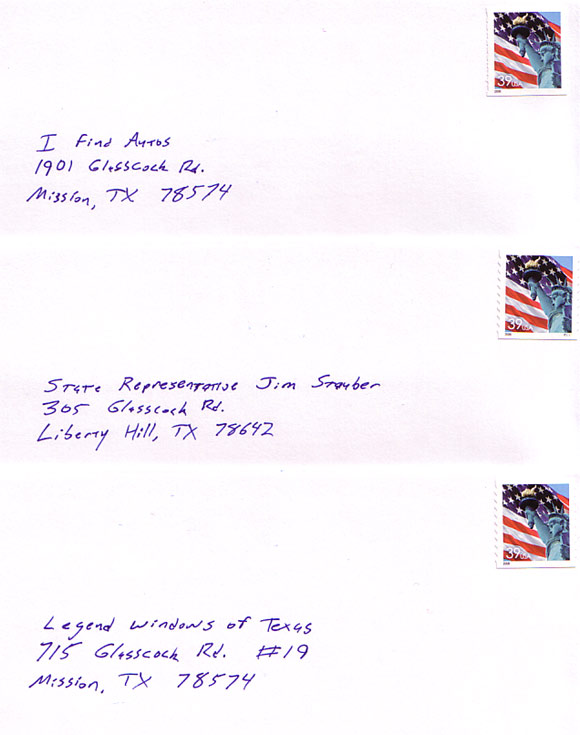 39 USA
I Find Autos
1901 Glasscock Rd.
Mission, TX 78574
39 USA
State Representative Jim Stauber
305 Glasscock Rd.
Liberty Hill, TX 78642
39 USA
Legend Windows of Texas
715 Glasscock Rd. #19
Mission, TX 78574